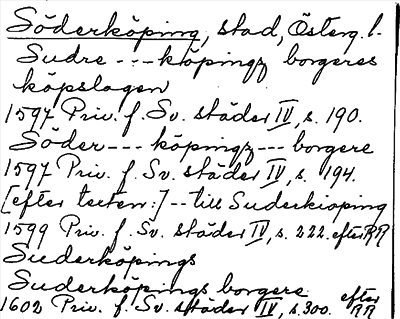 Söderköping, stad, Österg. l.
Sudre --- köpingz borgeres
köpslagen
1597 Priv. f. Sv. städer IV, s. 190.
Söder --- köpingz --- borgere
1597 Priv. f. Sv. städer IV, s. 194.
[efter texten:] -- till Suderkiöping
1599 Priv. f. Sv. städer IV, s. 222. efter RR
Suderköpings
Suderköpings borgere
1602 Priv. f. Sv. städer IV, s. 300. efter RR